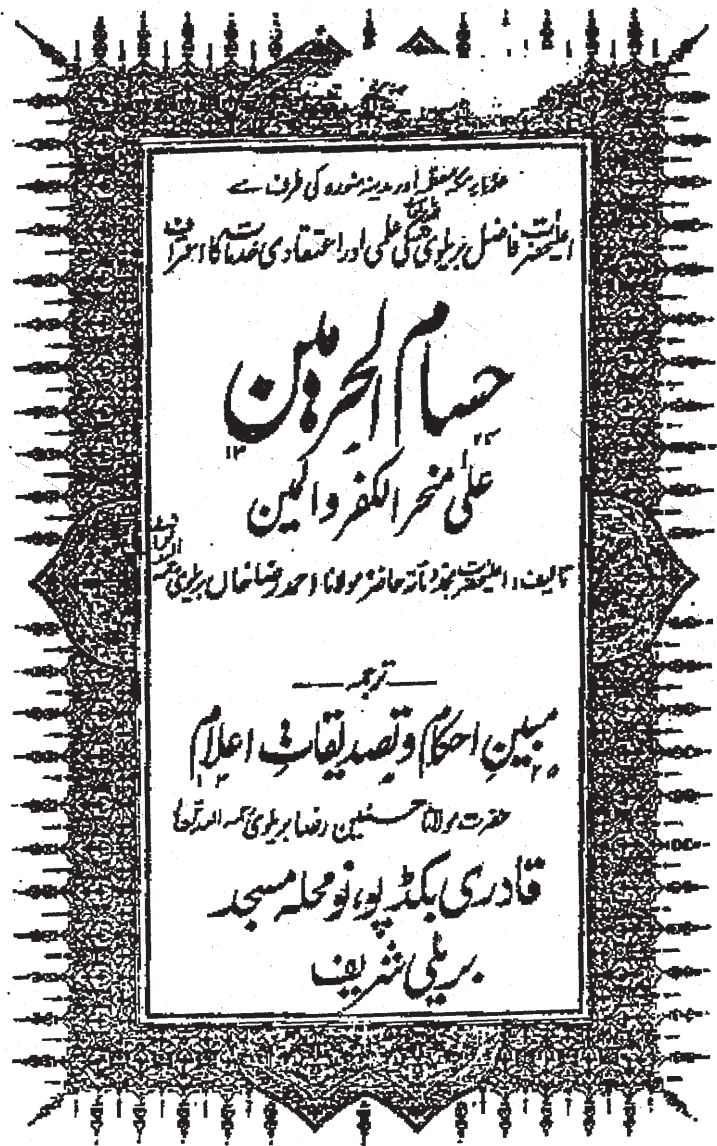 علماء مکہ معظمہ اور مدینہ منورہ کی طرف سے
اعلیٰحضرت فاضل بریلوی کی علمی اور اعتقادی خدمات کا اعتراف
حسام الحرمین
۱۳ ۲۴
علیٰ منحر الکفر والمین
تالیف: اعلیٰحضرت مجدد مأتہ حاضرہ مولانا احمد رضا خاں بریلوی
ترجمہ
مبین احکام و تصدیقاتِ اعلام
۱۳ ۲۵
حضرت مولانا حسنین رضا بریلوی رحمۃ اللہ تعالیٰ
قادری بکڈپو، نو محلہ مسجد
بریلی شریف